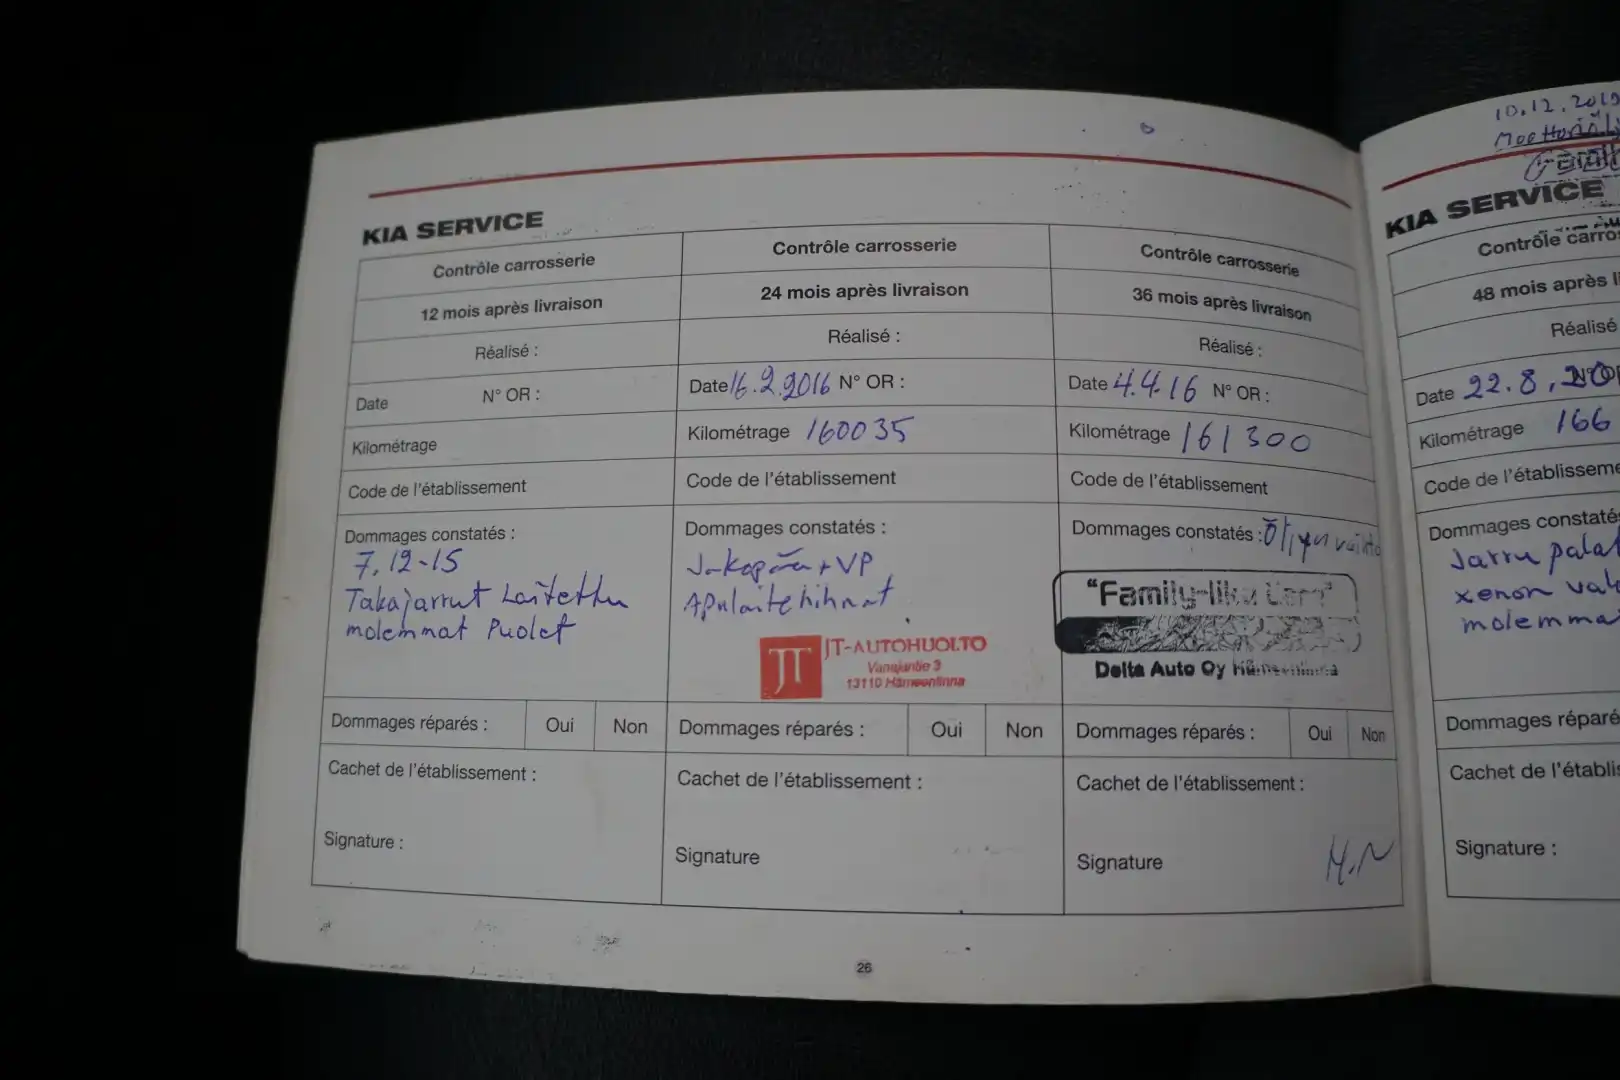 KIA SERVICE
Contrôle carrosserie
12 mois après livraison
Réalisé :
Date N° OR :
Kilométrage
Code de l'établissement
Dommages constatés :
7.12-15
Takajarrut Laitettu
molemmat Puolet
Dommages réparés : Oui Non
Cachet de l'établissement :
Signature :
Contrôle carrosserie
24 mois après livraison
Réalisé :
Date 16.2.2016 N° OR :
Kilométrage 160035
Code de l'établissement
Dommages constatés :
+ VP
Apulaitehihnat
JT
JT-AUTOHUOLTO
Vanajantie 3
13110 Hämeenlinna
Dommages réparés : Oui Non
Cachet de l'établissement :
Signature
Contrôle carrosserie
36 mois après livraison
Réalisé :
Date 4.4.16 N° OR :
Kilométrage 161300
Code de l'établissement
Dommages constatés : Öljyn vaihto
"Family-like Care"
Delta Auto Oy Hämeenlinna
Dommages réparés : Oui Non
Cachet de l'établissement :
Signature M.N
26
10.12.2019
KIA SERVICE
Contrôle carros
48 mois après li
Réalisé
Date 22.8.20 N° OR
Kilométrage 166
Code de l'établisseme
Dommages constatés
Jarru palat
xenon val
molemma
Dommages réparé
Cachet de l'établis
Signature :